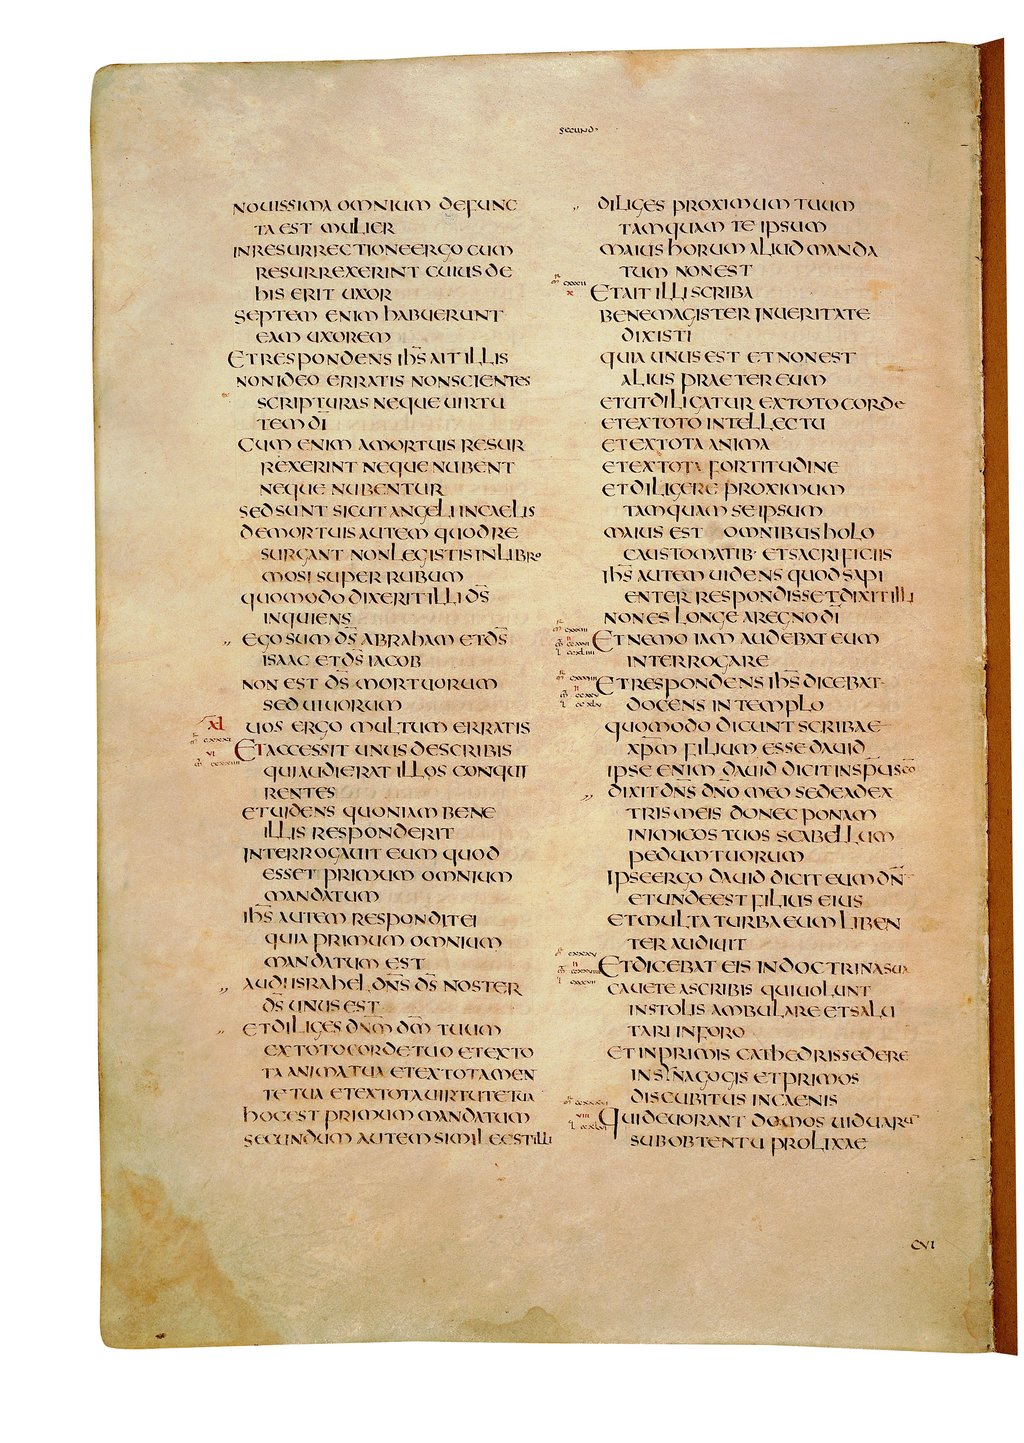 SECUND·
NOUISSIMA OMNIUM DEFUNC
TA EST MULIER
IN RESURRECTIONE ERGO CUM
RESURREXERINT CUIUS DE
HIS ERIT UXOR
SEPTEM ENIM HABUERUNT
EAM UXOREM
ET RESPONDENS IH̅S AIT ILLIS
NON IDEO ERRATIS NON SCIENTES
SCRIPTURAS NEQUE UIRTU
TEM DI̅
CUM ENIM A MORTUIS RESUR
REXERINT NEQUE NUBENT
NEQUE NUBENTUR
SED SUNT SICUT ANGELI IN CAELIS
DE MORTUIS AUTEM QUOD RE
SURGANT NON LEGISTIS IN LIBRO
MOSI SUPER RUBUM
QUOMODO DIXERIT ILLI DS̅
INQUIENS
EGO SUM DS̅ ABRAHAM ET DS̅
ISAAC ET DS̅ IACOB
NON EST DS̅ MORTUORUM
SED UIUORUM
XL UOS ERGO MULTUM ERRATIS
ET ACCESSIT UNUS DE SCRIBIS
QUI AUDIERAT ILLOS CONQUI
RENTES
ET UIDENS QUONIAM BENE
ILLIS RESPONDERIT
INTERROGAUIT EUM QUOD
ESSET PRIMUM OMNIUM
MANDATUM
IH̅S AUTEM RESPONDIT EI
QUIA PRIMUM OMNIUM
MANDATUM EST
AUDI ISRAHEL DN̅S DS̅ NOSTER
DS̅ UNUS EST
ET DILIGES DNM̅ DM̅ TUUM
EX TOTO CORDE TUO ET EX TO
TA ANIMA TUA ET EX TOTA MEN
TE TUA ET EX TOTA UIRTUTE TUA
HOC EST PRIMUM MANDATUM
SECUNDUM AUTEM SIMILE EST ILLI
DILIGES PROXIMUM TUUM
TAMQUAM TE IPSUM
MAIUS HORUM ALIUD MANDA
TUM NON EST
ET AIT ILLI SCRIBA
BENE MAGISTER IN UERITATE
DIXISTI
QUIA UNUS EST ET NON EST
ALIUS PRAETER EUM
ET UT DILIGATUR EX TOTO CORDE
ET EX TOTO INTELLECTU
ET EX TOTA ANIMA
ET EX TOTA FORTITUDINE
ET DILIGERE PROXIMUM
TAMQUAM SE IPSUM
MAIUS EST OMNIBUS HOLO
CAUSTOMATIB· ET SACRIFICIIS
IH̅S AUTEM UIDENS QUOD SAPI
ENTER RESPONDISSET DIXIT ILLI
NON ES LONGE A REGNO DI̅
ET NEMO IAM AUDEBAT EUM
INTERROGARE
ET RESPONDENS IH̅S DICEBAT
DOCENS IN TEMPLO
QUOMODO DICUNT SCRIBAE
XPM̅ FILIUM ESSE DAUID
IPSE ENIM DAUID DICIT IN SPU̅ SCO̅
DIXIT DN̅S DN̅O MEO SEDE A DEX
TRIS MEIS DONEC PONAM
INIMICOS TUOS SCABELLUM
PEDUM TUORUM
IPSE ERGO DAUID DICIT EUM DN̅
ET UNDE EST FILIUS EIUS
ET MULTA TURBA EUM LIBEN
TER AUDIUIT
ET DICEBAT EIS IN DOCTRINA SUA
CAUETE A SCRIBIS QUI UOLUNT
IN STOLIS AMBULARE ET SALU
TARI IN FORO
ET IN PRIMIS CATHEDRIS SEDERE
IN SYNAGOGIS ET PRIMOS
DISCUBITUS IN CAENIS
QUI DEUORANT DOMOS UIDUARU
SUB OBTENTU PROLIXAE
CVI